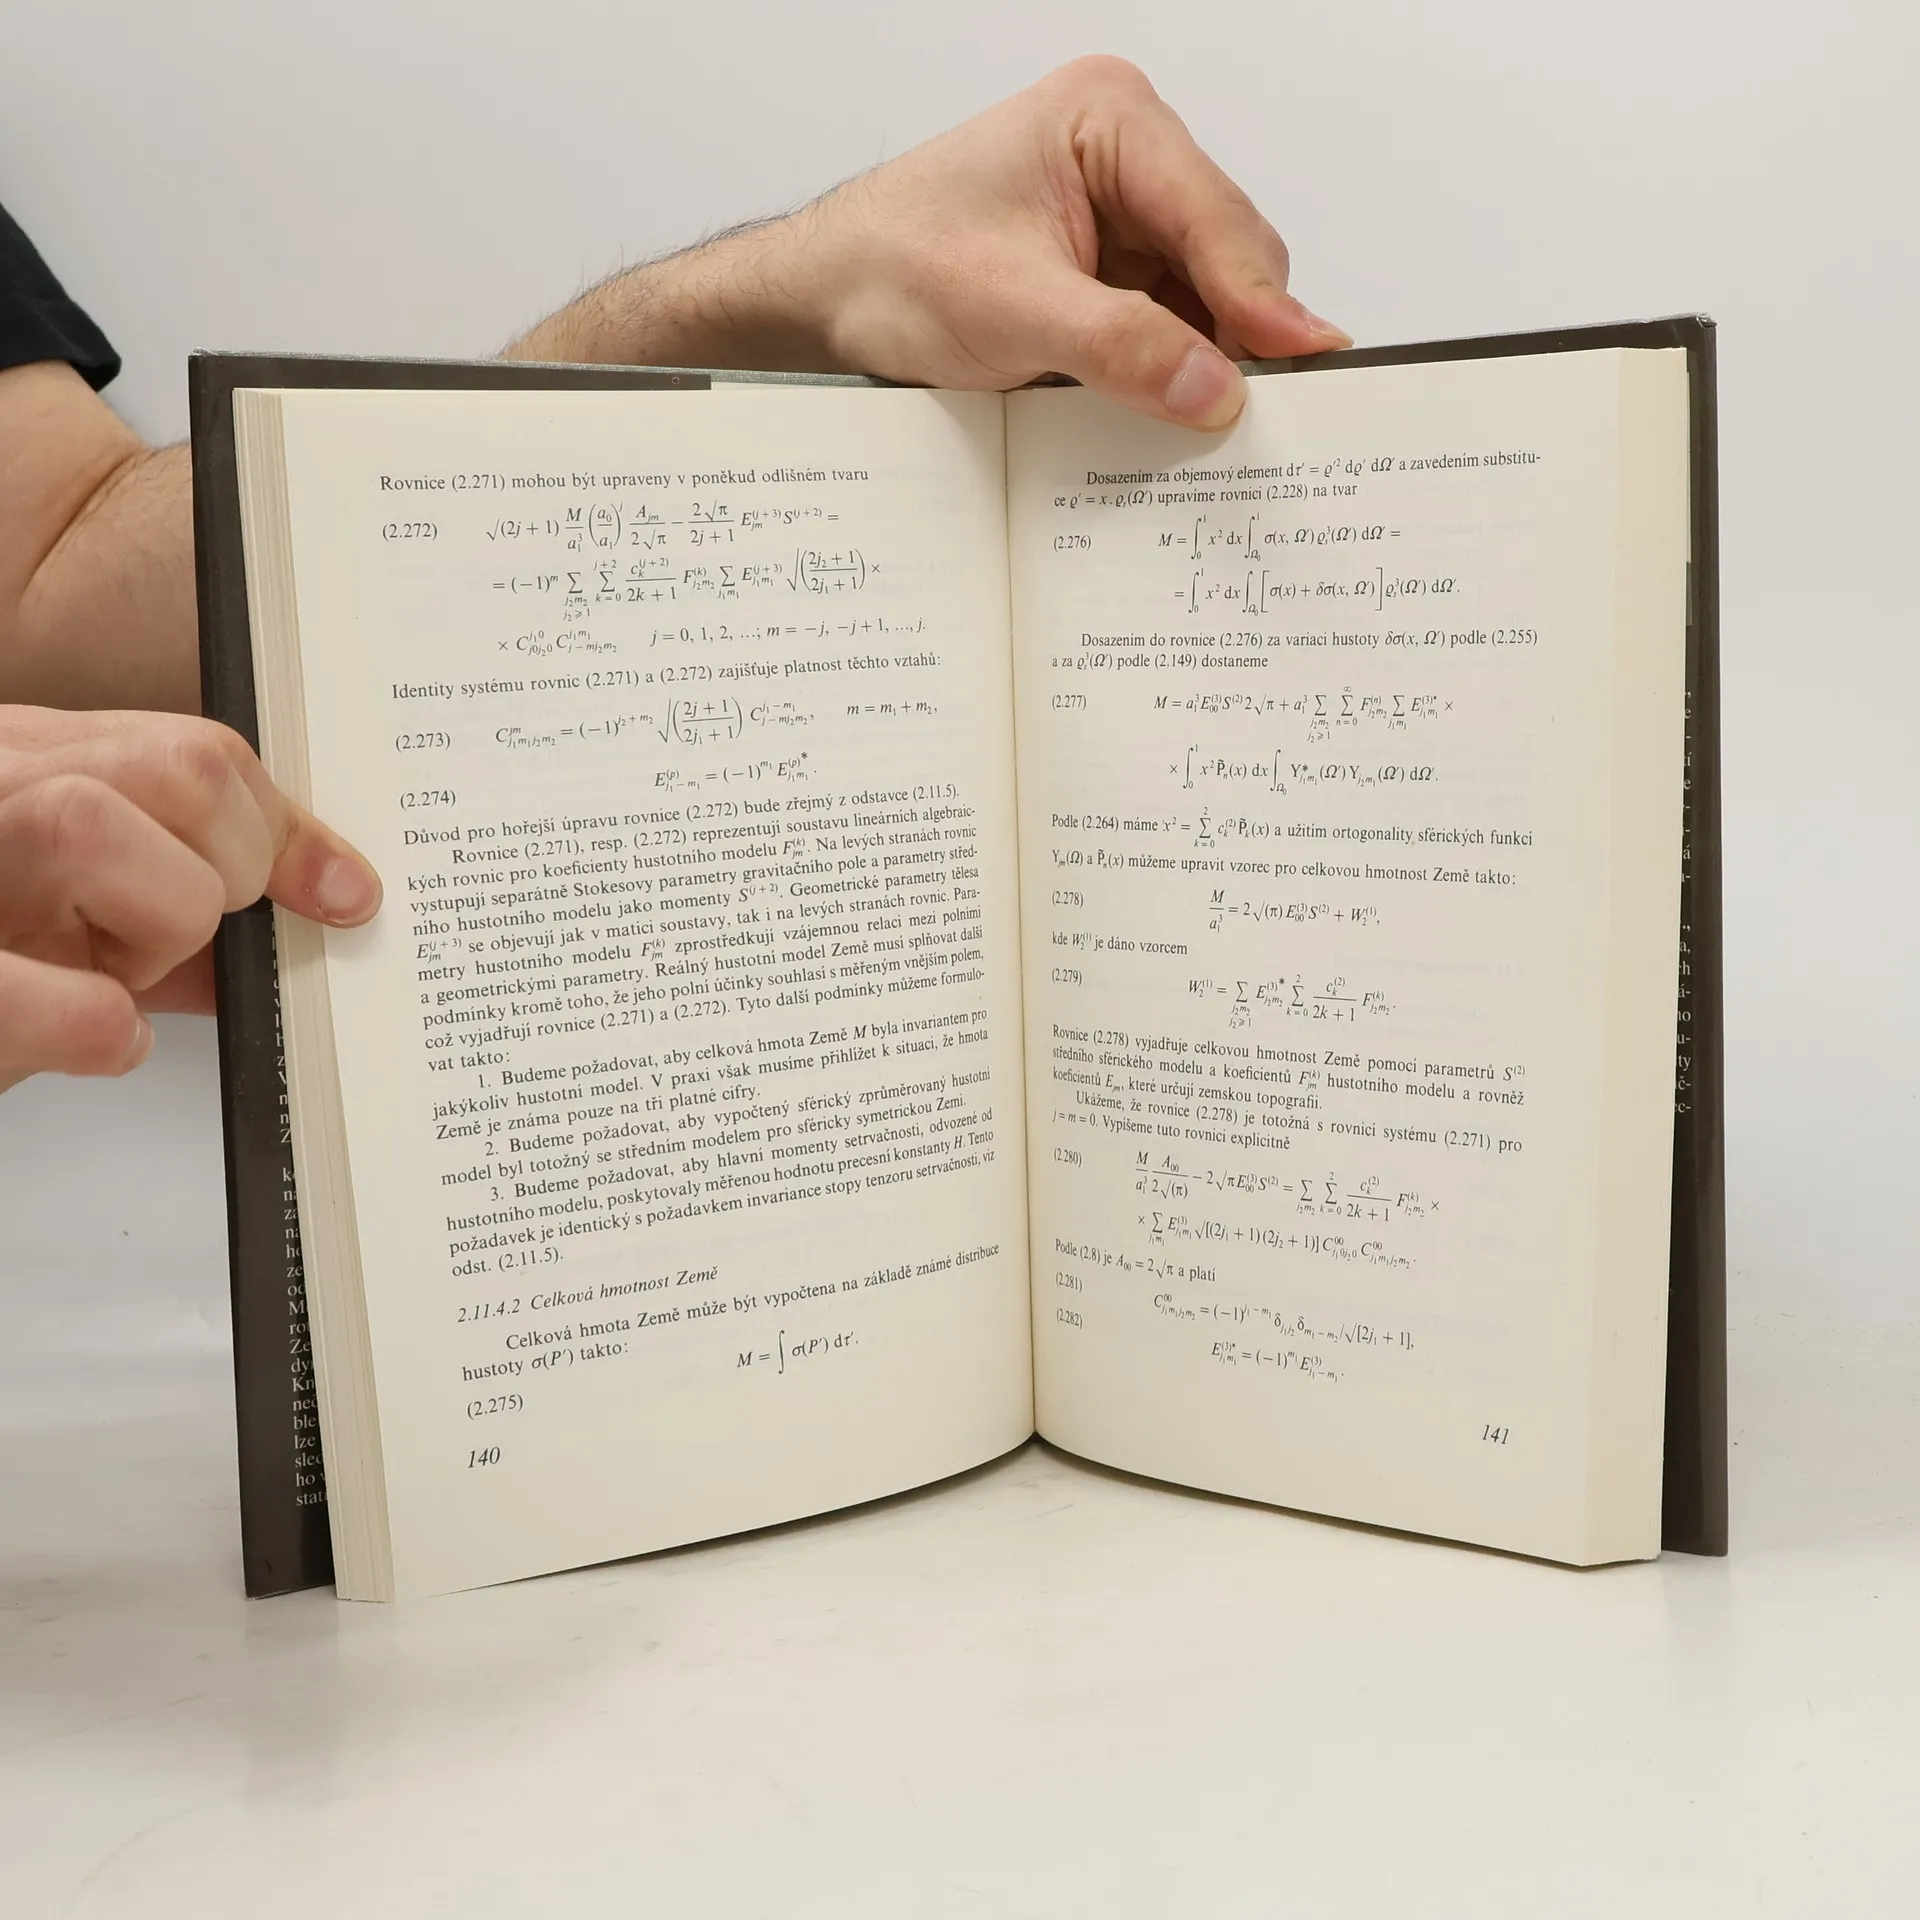 Rovnice (2.271) mohou být upraveny v poněkud odlišném tvaru
(2.272) √(2j + 1) M/a₁³ (a₀/a₁)ʲ A_jm/2√π − 2√π/2j + 1 E_jm^(j + 3) S^(j + 2) =
= (−1)^m Σ_{j₂m₂, j₂ ≥ 1} Σ_{k = 0}^{j + 2} c_k^(j + 2)/2k + 1 F_{j₂m₂}^(k) Σ_{j₁m₁} E_{j₁m₁}^(j + 3) √(2j₂ + 1/2j₁ + 1) ×
× C_{j0j₂0}^{j₁0} C_{j − mj₂m₂}^{j₁m₁} j = 0, 1, 2, ...; m = −j, −j + 1, ..., j.
Identity systému rovnic (2.271) a (2.272) zajišťuje platnost těchto vztahů:
(2.273) C_{j₁m₁j₂m₂}^{jm} = (−1)^{j₂ + m₂} √(2j + 1/2j₁ + 1) C_{j − mj₂m₂}^{j₁ − m₁}, m = m₁ + m₂,
(2.274) E_{j₁ − m₁}^(p) = (−1)^{m₁} E_{j₁m₁}^(p)*.
Důvod pro hořejší úpravu rovnice (2.272) bude zřejmý z odstavce (2.11.5).
Rovnice (2.271), resp. (2.272) reprezentují soustavu lineárních algebraic-
kých rovnic pro koeficienty hustotního modelu F_jm^(k). Na levých stranách rovnic
vystupují separátně Stokesovy parametry gravitačního pole a parametry střed-
ního hustotního modelu jako momenty S^(j + 2). Geometrické parametry tělesa
E_jm^(j + 3) se objevují jak v matici soustavy, tak i na levých stranách rovnic. Para-
metry hustotního modelu F_jm^(k) zprostředkují vzájemnou relaci mezi polními
a geometrickými parametry. Reálný hustotní model Země musí splňovat další
podmínky kromě toho, že jeho polní účinky souhlasí s měřeným vnějším polem,
což vyjadřují rovnice (2.271) a (2.272). Tyto další podmínky můžeme formulo-
vat takto:
1. Budeme požadovat, aby celková hmota Země M byla invariantem pro
jakýkoliv hustotní model. V praxi však musíme přihlížet k situaci, že hmota
Země je známa pouze na tři platné cifry.
2. Budeme požadovat, aby vypočtený sférický zprůměrovaný hustotní
model byl totožný se středním modelem pro sféricky symetrickou Zemi.
3. Budeme požadovat, aby hlavní momenty setrvačnosti, odvozené od
hustotního modelu, poskytovaly měřenou hodnotu precesní konstanty H. Tento
požadavek je identický s požadavkem invariance stopy tenzoru setrvačnosti, viz
odst. (2.11.5).
2.11.4.2 Celková hmotnost Země
Celková hmota Země může být vypočtena na základě známé distribuce
hustoty σ(P′) takto:
(2.275) M = ∫ σ(P′) dτ′.
140
Dosazením za objemový element dτ′ = ϱ′² dϱ′ dΩ′ a zavedením substitu-
ce ϱ′ = x . ϱ_s(Ω′) upravíme rovnici (2.228) na tvar
(2.276) M = ∫₀¹ x² dx ∫_{Ω₀} σ(x, Ω′) ϱ_s³(Ω′) dΩ′ =
= ∫₀¹ x² dx ∫_{Ω₀} [σ(x) + δσ(x, Ω′)] ϱ_s³(Ω′) dΩ′.
Dosazením do rovnice (2.276) za variaci hustoty δσ(x, Ω′) podle (2.255)
a za ϱ_s³(Ω′) podle (2.149) dostaneme
(2.277) M = a₁³ E₀₀^(3) S^(2) 2√π + a₁³ Σ_{j₂m₂, j₂ ≥ 1} Σ_{n = 0}^∞ F_{j₂m₂}^(n) Σ_{j₁m₁} E_{j₁m₁}^(3)* ×
× ∫₀¹ x² P̃_n(x) dx ∫_{Ω₀} Y*_{j₁m₁}(Ω′) Y_{j₂m₂}(Ω′) dΩ′.
Podle (2.264) máme x² = Σ_{k = 0}^2 c_k^(2) P̃_k(x) a užitím ortogonality sférických funkcí
Y_jm(Ω) a P̃_n(x) můžeme upravit vzorec pro celkovou hmotnost Země takto:
(2.278) M/a₁³ = 2√(π) E₀₀^(3) S^(2) + W₂^(1),
kde W₂^(1) je dáno vzorcem
(2.279) W₂^(1) = Σ_{j₂m₂, j₂ ≥ 1} E_{j₂m₂}^(3)* Σ_{k = 0}^2 c_k^(2)/2k + 1 F_{j₂m₂}^(k).
Rovnice (2.278) vyjadřuje celkovou hmotnost Země pomocí parametrů S^(2)
středního sférického modelu a koeficientů F_jm^(k) hustotního modelu a rovněž
koeficientů E_jm, které určují zemskou topografii.
Ukážeme, že rovnice (2.278) je totožná s rovnicí systému (2.271) pro
j = m = 0. Vypíšeme tuto rovnici explicitně
(2.280) M/a₁³ A₀₀/2√(π) − 2√π E₀₀^(3) S^(2) = Σ_{j₂m₂} Σ_{k = 0}^2 c_k^(2)/2k + 1 F_{j₂m₂}^(k) ×
× Σ_{j₁m₁} E_{j₁m₁}^(3) √[(2j₁ + 1) (2j₂ + 1)] C_{j₁0j₂0}^{00} C_{j₁m₁j₂m₂}^{00}.
Podle (2.8) je A₀₀ = 2√π a platí
(2.281) C_{j₁m₁j₂m₂}^{00} = (−1)^{j₁ − m₁} δ_{j₁j₂} δ_{m₁ − m₂}/√[2j₁ + 1],
(2.282) E_{j₁m₁}^(3)* = (−1)^{m₁} E_{j₁ − m₁}^(3).
141